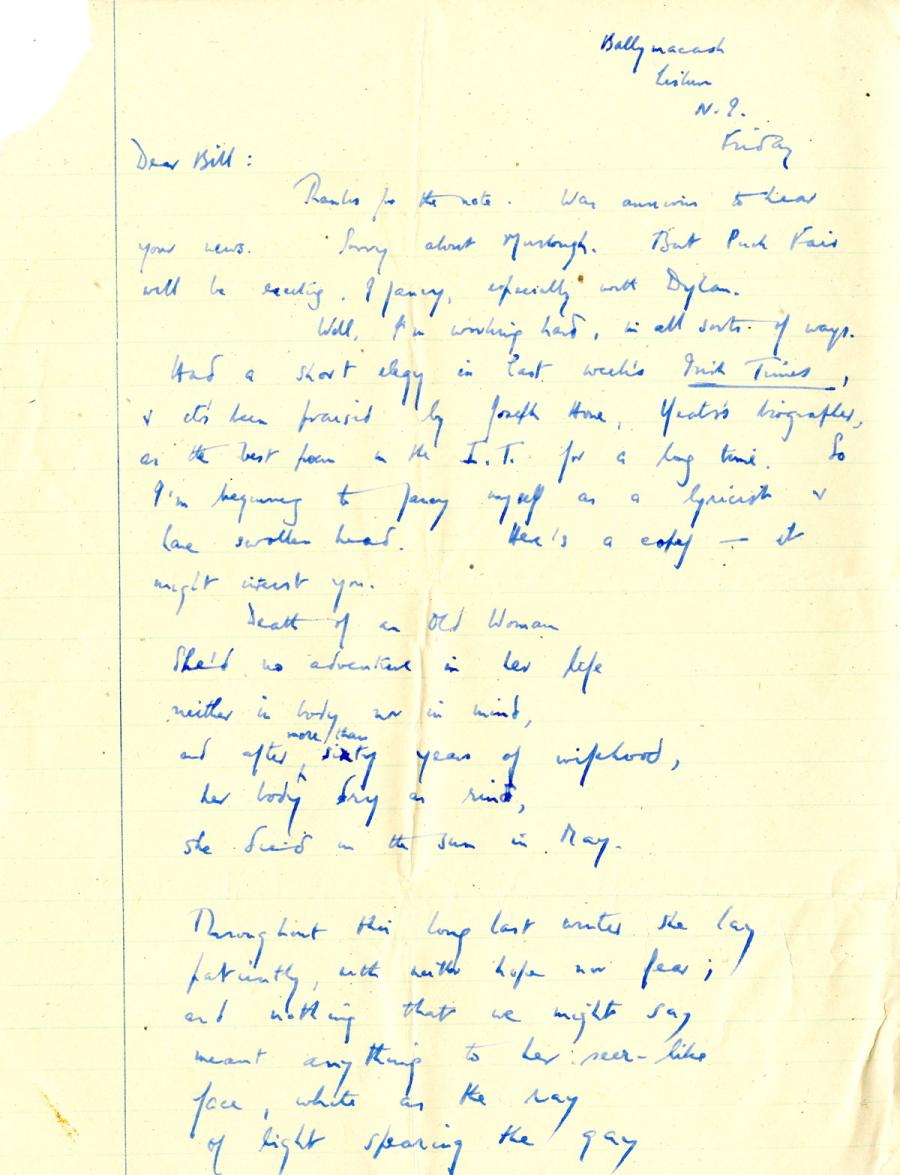 Ballymacash
Lisburn
N.I.
Friday
Dear Bill:
Thanks for the note. Was anxious to hear
your news. Sorry about Murlough. But Puck Fair
will be exciting, I fancy, especially with Dylan.
Well, I'm working hard, in all sorts of ways.
Had a short elegy in last week's Irish Times,
& it's been praised by Joseph Hone, Yeats's biographer,
as the best poem in the I.T. for a long time. So
I'm beginning to fancy myself as a lyricist &
have swollen head. Here's a copy — it
might interest you.
Death of an Old Woman
She'd no adventure in her life
neither in body nor in mind,
more than
and after sixty years of wifehood,
her body dry as rind,
she died in the sun in May.
Throughout this long last winter she lay
patiently, with neither hope nor fear;
and nothing that we might say
meant anything to her seer-like
face, white as the ray
of light spearing the gay